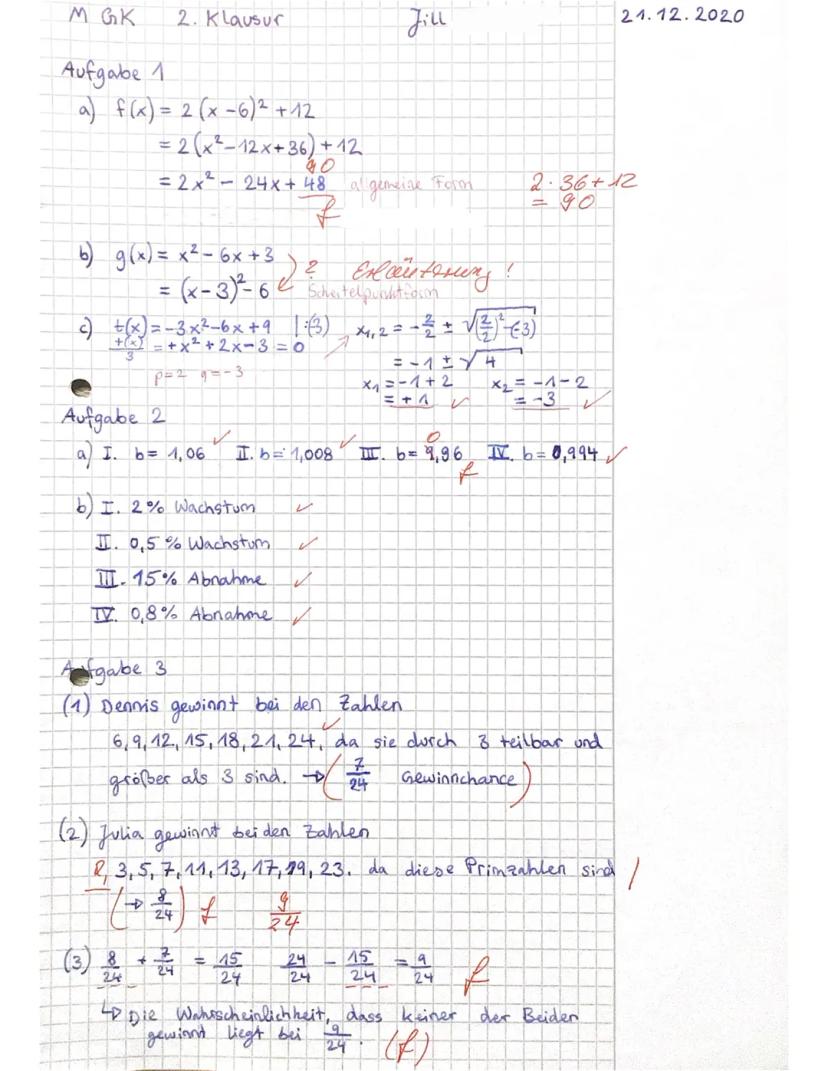 M GK 2. Klausur Jill 21.12.2020
Aufgabe 1
a) f(x) = 2 (x - 6)² + 12
= 2(x² - 12x + 36) + 12
90
= 2x² - 24x + 48 allgemeine Form 2 · 36 + 12
f = 90
b) g(x) = x² - 6x + 3
? Erläuterung!
= (x - 3)² - 6 Scheitelpunktform
c) t(x) = -3x² - 6x + 9 | :(3) x₁,₂ = -2/2 ± √((2/2)² - (-3))
t(x)/3 = +x² + 2x - 3 = 0 = -1 ± √4
p=2 q=-3 x₁ = -1 + 2 x₂ = -1 - 2
= +1 ✓ = -3 ✓
Aufgabe 2
a) I. b = 1,06 ✓ II. b = 1,008 ✓ III. b = 9,96 0 f IV. b = 0,994 ✓
b) I. 2% Wachstum ✓
II. 0,5 % Wachstum ✓
III. 15% Abnahme ✓
IV. 0,8% Abnahme ✓
Aufgabe 3
(1) Dennis gewinnt bei den Zahlen
6, 9, 12, 15, 18, 21, 24, ✓ da sie durch 3 teilbar und
größer als 3 sind. → (7/24 Gewinnchance)
(2) Julia gewinnt bei den Zahlen
2, 3, 5, 7, 11, 13, 17, 19, 23. da diese Primzahlen sind /
(→ 8/24) f 9/24
(3) 8/24 + 7/24 = 15/24 24/24 - 15/24 = 9/24 f
↳ Die Wahrscheinlichkeit, dass keiner der Beiden
gewinnt liegt bei 9/24. (f)